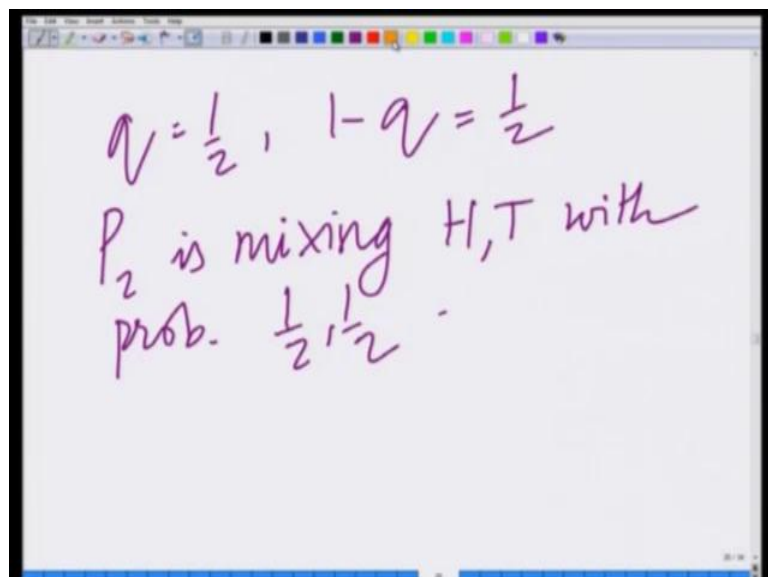 File Edit View Insert Actions Tools Help
q = 1/2, 1 - q = 1/2
P₂ is mixing H,T with
prob. 1/2, 1/2.